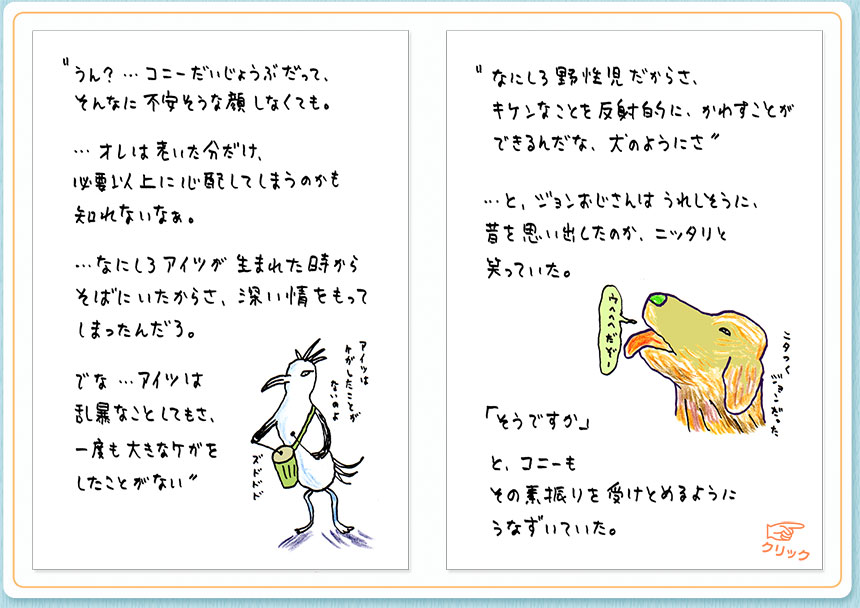 〝うん？…コニーだいじょうぶだって、
そんなに不安そうな顔しなくても。
…オレは老いた分だけ、
必要以上に心配してしまうのかも
知れないなぁ。
…なにしろアイツが生まれた時から
そばにいたからさ、深い情をもって
しまったんだろ。
でな…アイツは
乱暴なことしてもさ、
一度も大きなケガを
したことがない〟
アイツは
ケガしたことが
ないのよ
ズドドドド
〝なにしろ野性児だからさ、
キケンなことを反射的に、かわすことが
できるんだな、犬のようにさ〟
…と、ジョンおじさんはうれしそうに、
昔を思い出したのか、ニッタリと
笑っていた。
ウヘヘヘだぞー
ニタつく
ジョンだった
「そうですか」
と、コニーも
その素振りを受けとめるように
うなずいていた。
クリック